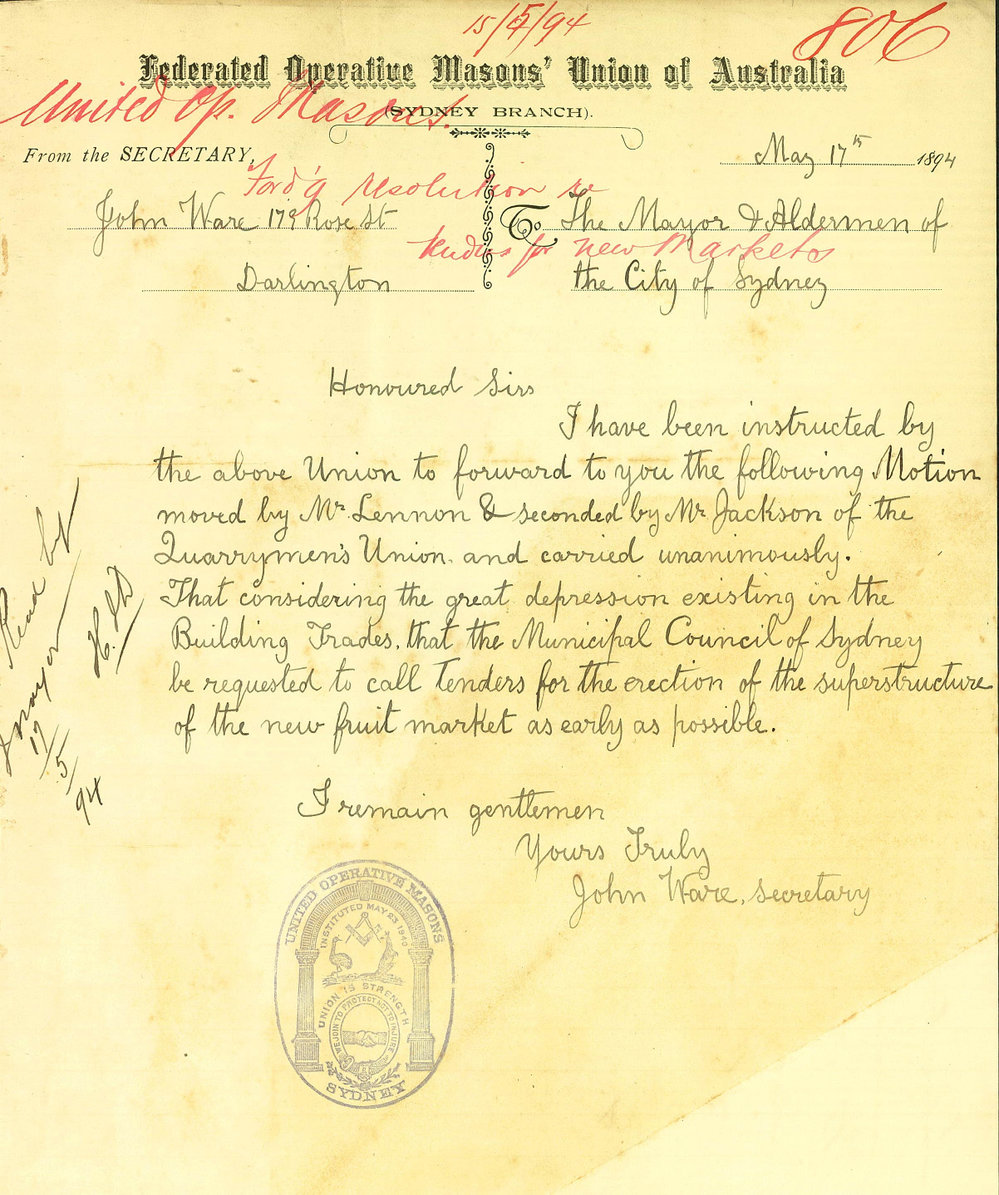 15/5/94
806
Federated Operative Masons' Union of Australia
United Op. Masons.
(SYDNEY BRANCH).
From the SECRETARY,
May 17th 1894
Ford'g resolution re
John Ware 179 Rose St
To The Mayor & Aldermen of
tenders for new Markets
Darlington
the City of Sydney
Honoured Sirs
I have been instructed by
the above Union to forward to you the following Motion
moved by Mr. Lennon & seconded by Mr Jackson of the
Quarrymen's Union. and carried unanimously.
That considering the great depression existing in the
Building Trades, that the Municipal Council of Sydney
be requested to call Tenders for the erection of the superstructure
of the new fruit market as early as possible.
Read by
Mayor
H.
17/5/94
I remain gentlemen
Yours Truly
John Ware, secretary
UNITED OPERATIVE MASONS
INSTITUTED MAY 23 1840
UNION IS STRENGTH
WE JOIN TO PROTECT NOT TO INJURE
SYDNEY